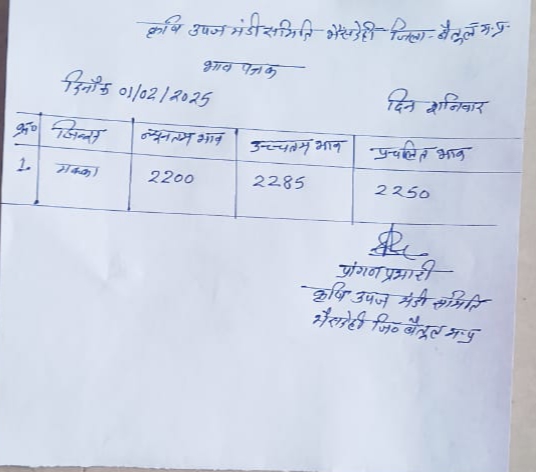 कृषि उपज मंडी समिति भैंसदेही जिला-बैतूल म.प्र
भाव पत्रक
दिनाँक 01/02/2025 दिन शनिवार
क्र० जिन्स न्यूनतम भाव उच्चतम भाव प्रचलित भाव
1. मक्का 2200 2285 2250
प्रांगण प्रभारी
कृषि उपज मंडी समिति
भैंसदेही जि० बैतूल म.प्र